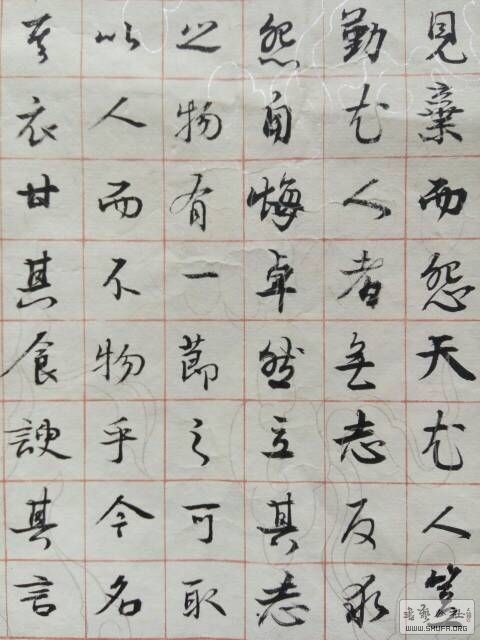 見棄而怨天尤人豈
勤尤人者無志反求
怨自悔卓然立其志
之物有一節之可取
以人而不物乎今名
其衣甘其食諛其言
WWW.SHUFA.ORG